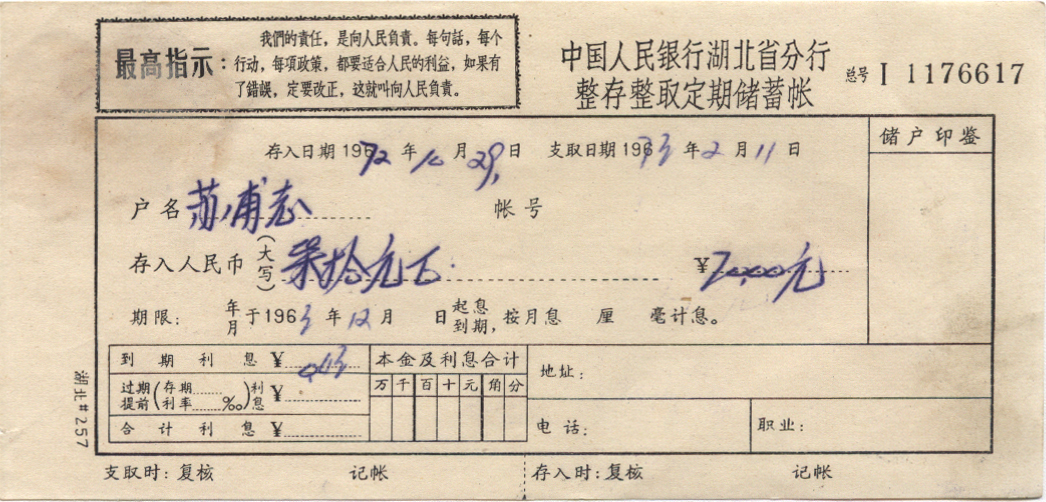 最高指示:
我們的責任，是向人民負責。每句話，每个
行动，每項政策，都要适合人民的利益，如果有
了錯誤，定要改正，这就叫向人民負責。
中国人民银行湖北省分行
整存整取定期储蓄帐
总号 I 1176617
存入日期 196 72 年 10 月 29 日 支取日期 196 73 年 2 月 11 日
储户印鉴
户名 苏甫志 帐号
存入人民币(大写) 柒拾元 ¥70.00元
期限: 年月于196 3 年 12 月 日起息到期，按月息 厘 毫计息。
到期利息 ¥
本金及利息合计
地址:
过期提前(存期......利率......‰)利息 ¥
万 千 百 十 元 角 分
合计利息 ¥
电话:
职业:
支取时:复核 记帐 存入时:复核 记帐
湖北#257